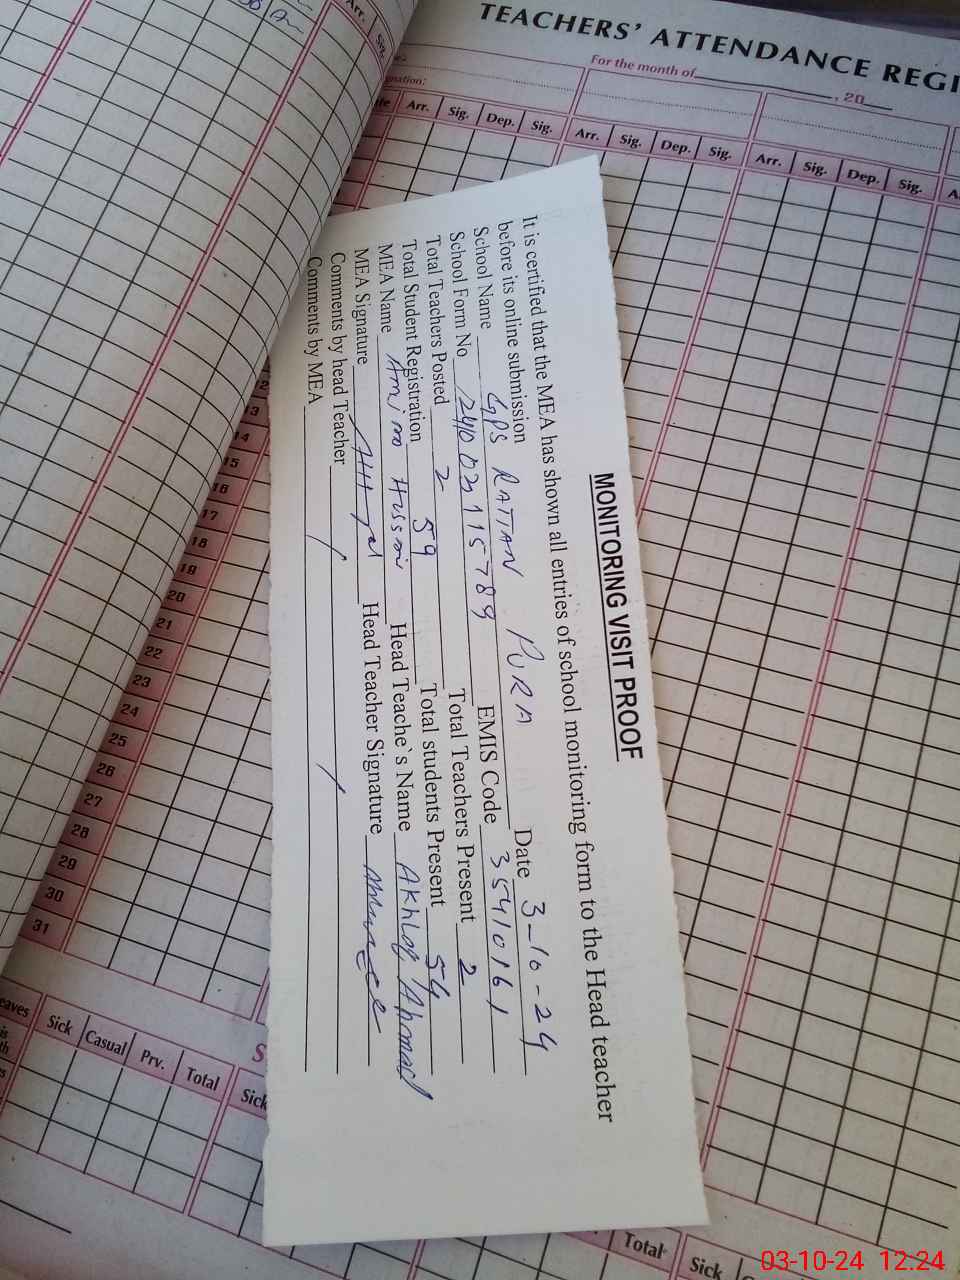 TEACHERS' ATTENDANCE REGI
For the month of , 20
Arr. Sig. Dep. Sig. Arr. Sig. Dep. Sig. Arr. Sig. Dep. Sig. A
Arr. Sig.
MONITORING VISIT PROOF
It is certified that the MEA has shown all entries of school monitoring form to the Head teacher
before its online submission Date 3-10-24
School Name GPS RATTAN PURA EMIS Code 35410161
School Form No Total Teachers Present 2
Total Teachers Posted 2 Total students Present 54
Total Student Registration 59 Head Teache`s Name Akhlaq Ahmad
MEA Name Head Teacher Signature
MEA Signature
Comments by head Teacher
Comments by MEA
13
14
15
16
17
18
19
20
21
22
23
24
25
26
27
28
29
30
31
eaves Sick Casual Prv. Total Sick
Total Sick
03-10-24 12:24